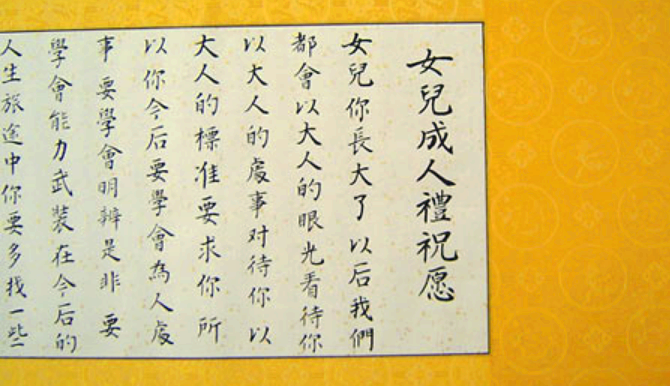 女兒成人禮祝愿
女兒你長大了以后我們
都會以大人的眼光看待你
以大人的處事对待你以
大人的標准要求你所
以你今后要學會為人處
事要學會明辨是非要
學會能力武裝在今后的
人生旅途中你要多找一些